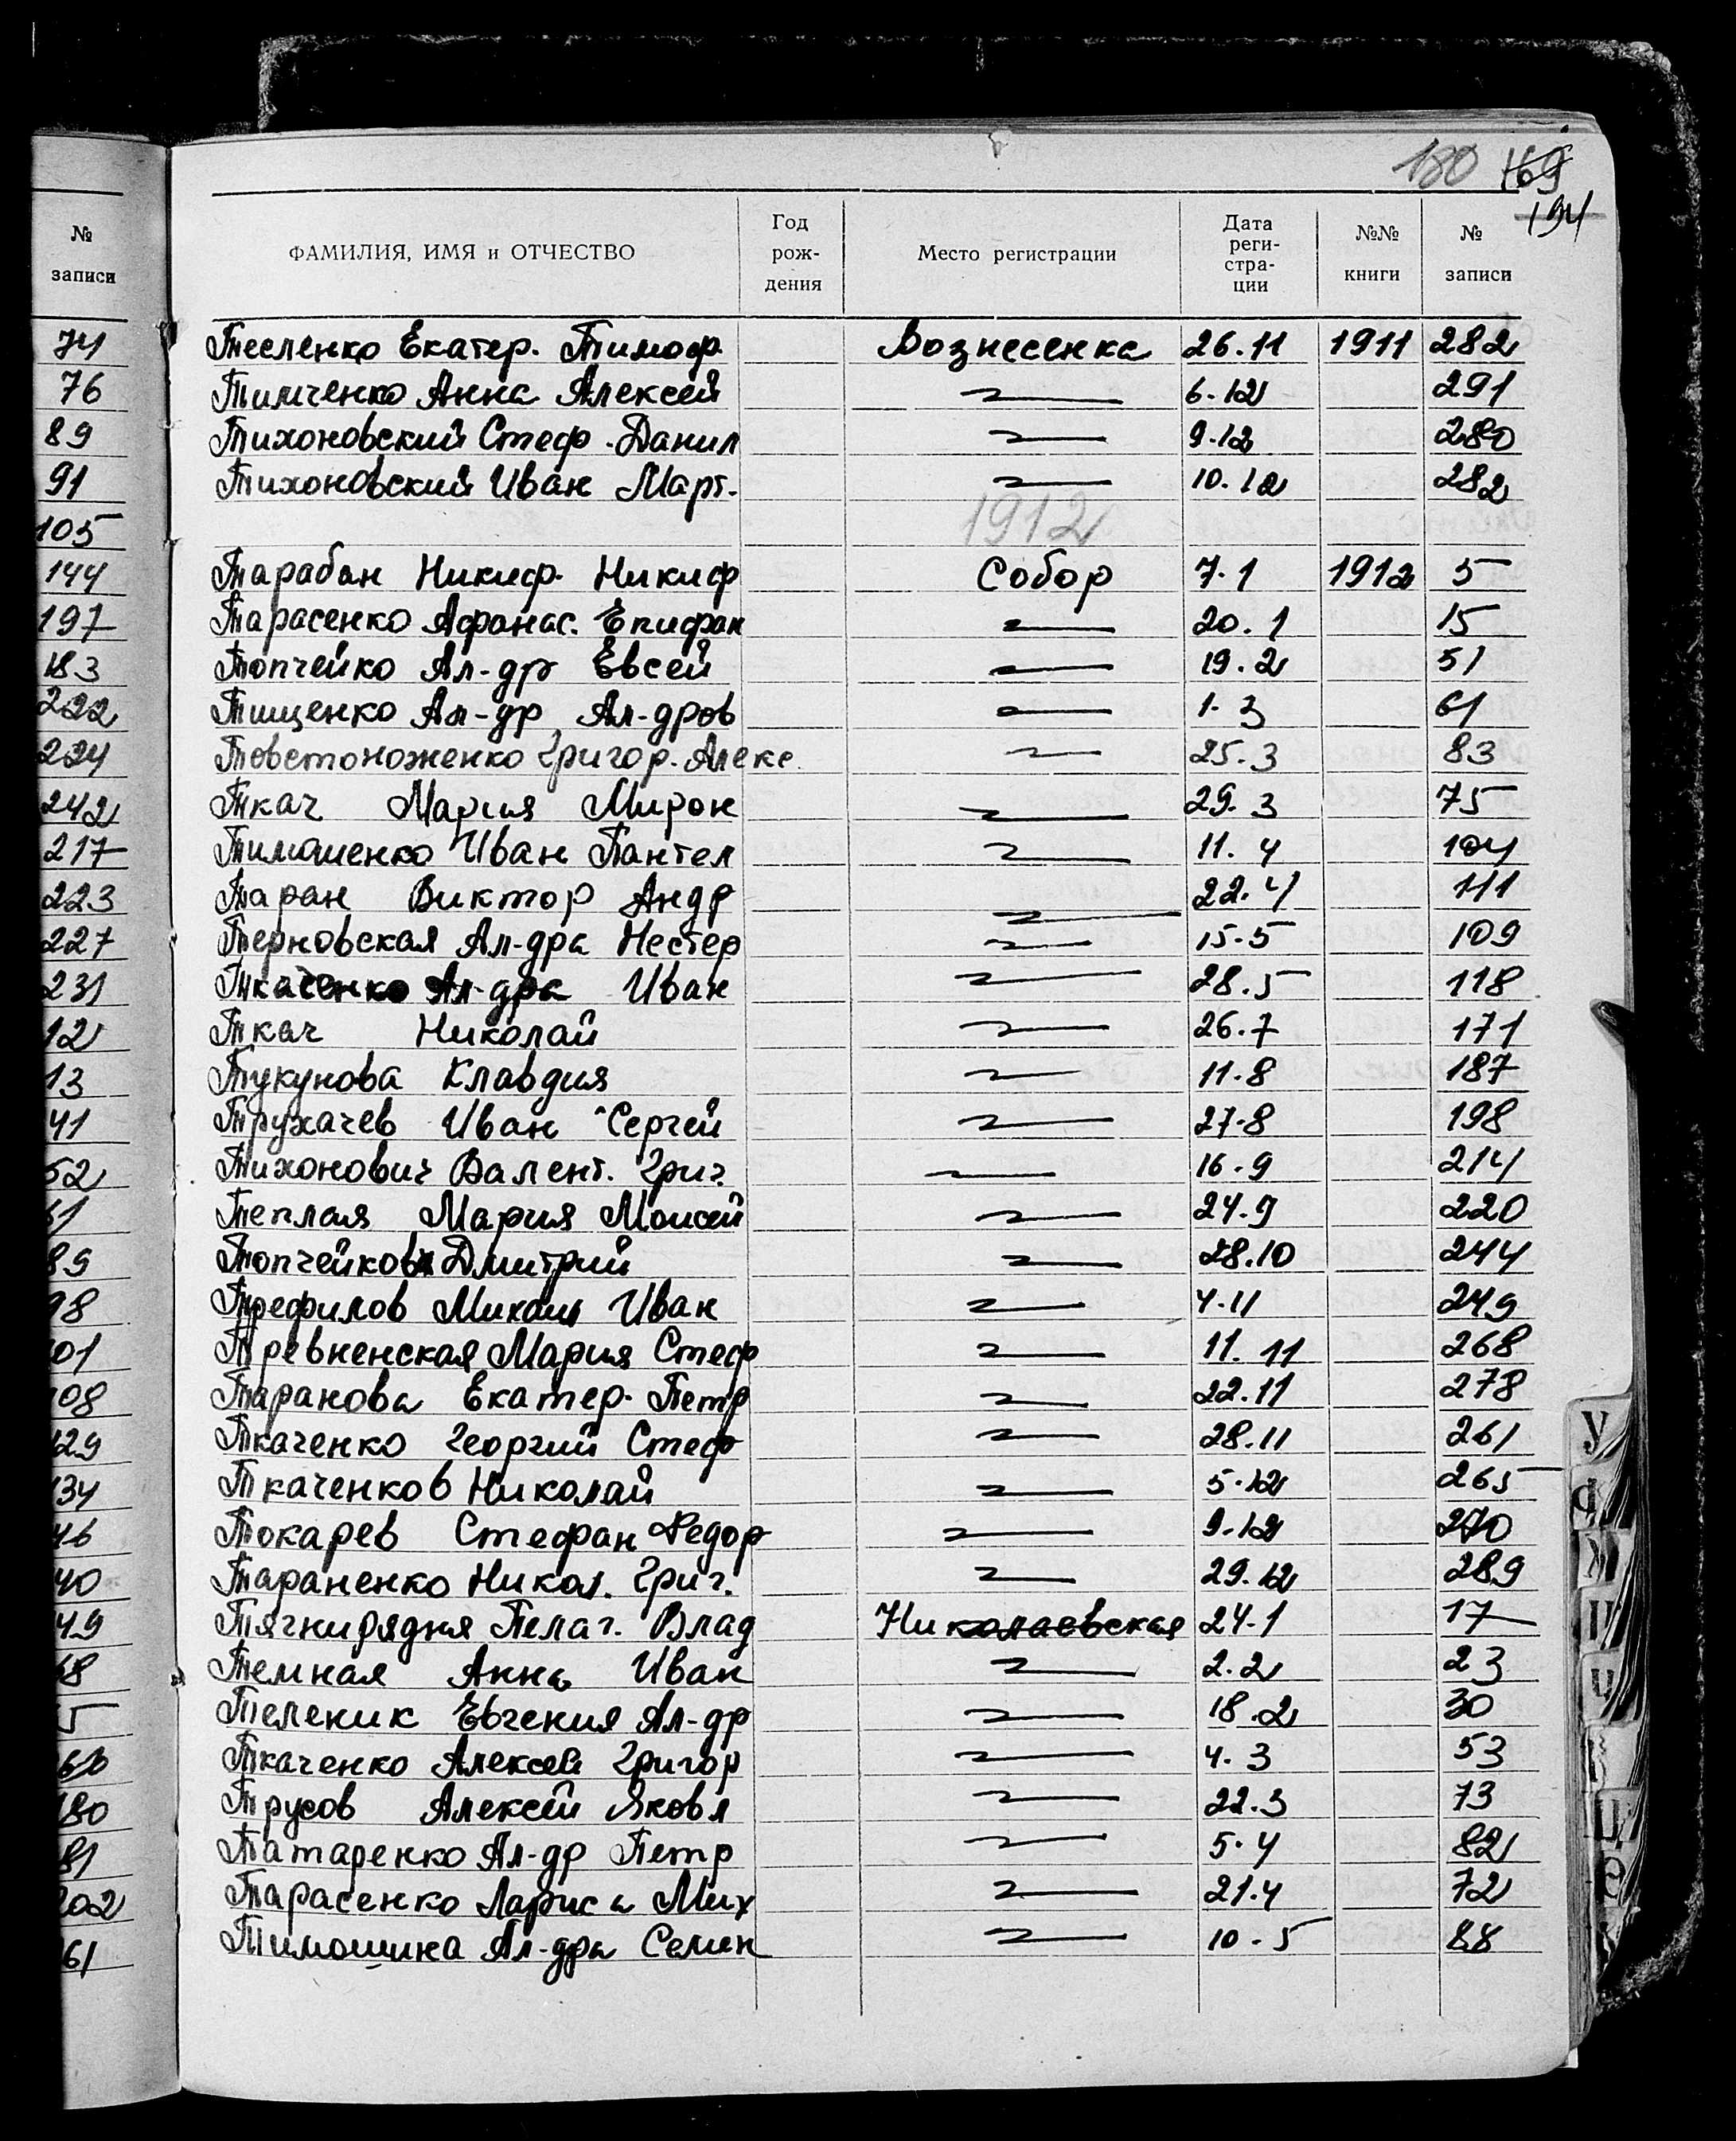 180 169
194
№ записи
ФАМИЛИЯ, ИМЯ и ОТЧЕСТВО Год рож-дения Место регистрации Дата реги-стра-ции №№ книги № записи
74 Тесленко Екатер. Тимоф. Вознесенка 26.11 1911 282
76 Тимченко Анна Алексей 6.12 291
89 Тихоновский Стеф. Данил 9.12 280
91 Тихоновский Иван Март. 10.12 282
105 1912
144 Тарабан Никиф. Никиф Собор 7.1 1912 5
197 Тарасенко Афанас. Епифан 20.1 15
183 Топчейко Ал-др Евсей 19.2 51
222 Тищенко Ал-др Ал-дров 1.3 61
224 Товстоноженко Григор. Алекс. 25.3 83
242 Ткач Мария Мирон 29.3 75
217 Тимошенко Иван Пантел 11.4 104
223 Таран Виктор Андр 22.4 111
227 Терновская Ал-дра Нестер 15.5 109
231 Ткаченко Ал-дра Иван 28.5 118
12 Ткач Николай 26.7 171
13 Тукунова Клавдия 11.8 187
41 Трухачев Иван Сергей 27.8 198
52 Тихонович Валент. Григ. 16.9 214
61 Теплая Мария Моисей 24.9 220
89 Топчейков Дмитрий 28.10 244
98 Трефилов Михаил Иван 4.11 249
01 Тревненская Мария Стеф 11.11 268
08 Таранова Екатер. Петр 22.11 278
129 Ткаченко Георгий Стеф 28.11 261
134 Ткаченков Николай 5.12 265
46 Токарев Стефан Федор 9.12 270
40 Тараненко Никол. Григ. 29.12 289
49 Тягнирядня Пелаг. Влад Николаевская 24.1 17
68 Темная Анна Иван 2.2 23
5 Теленик Евгения Ал-др 18.2 30
Ткаченко Алексей Григор 4.3 53
180 Трусов Алексей Яковл 22.3 73
81 Татаренко Ал-др Петр 5.4 82
202 Тарасенко Лариса Мих 21.4 72
61 Тимошина Ал-дра Семен 10.5 88
У
Ф
Х
Ц